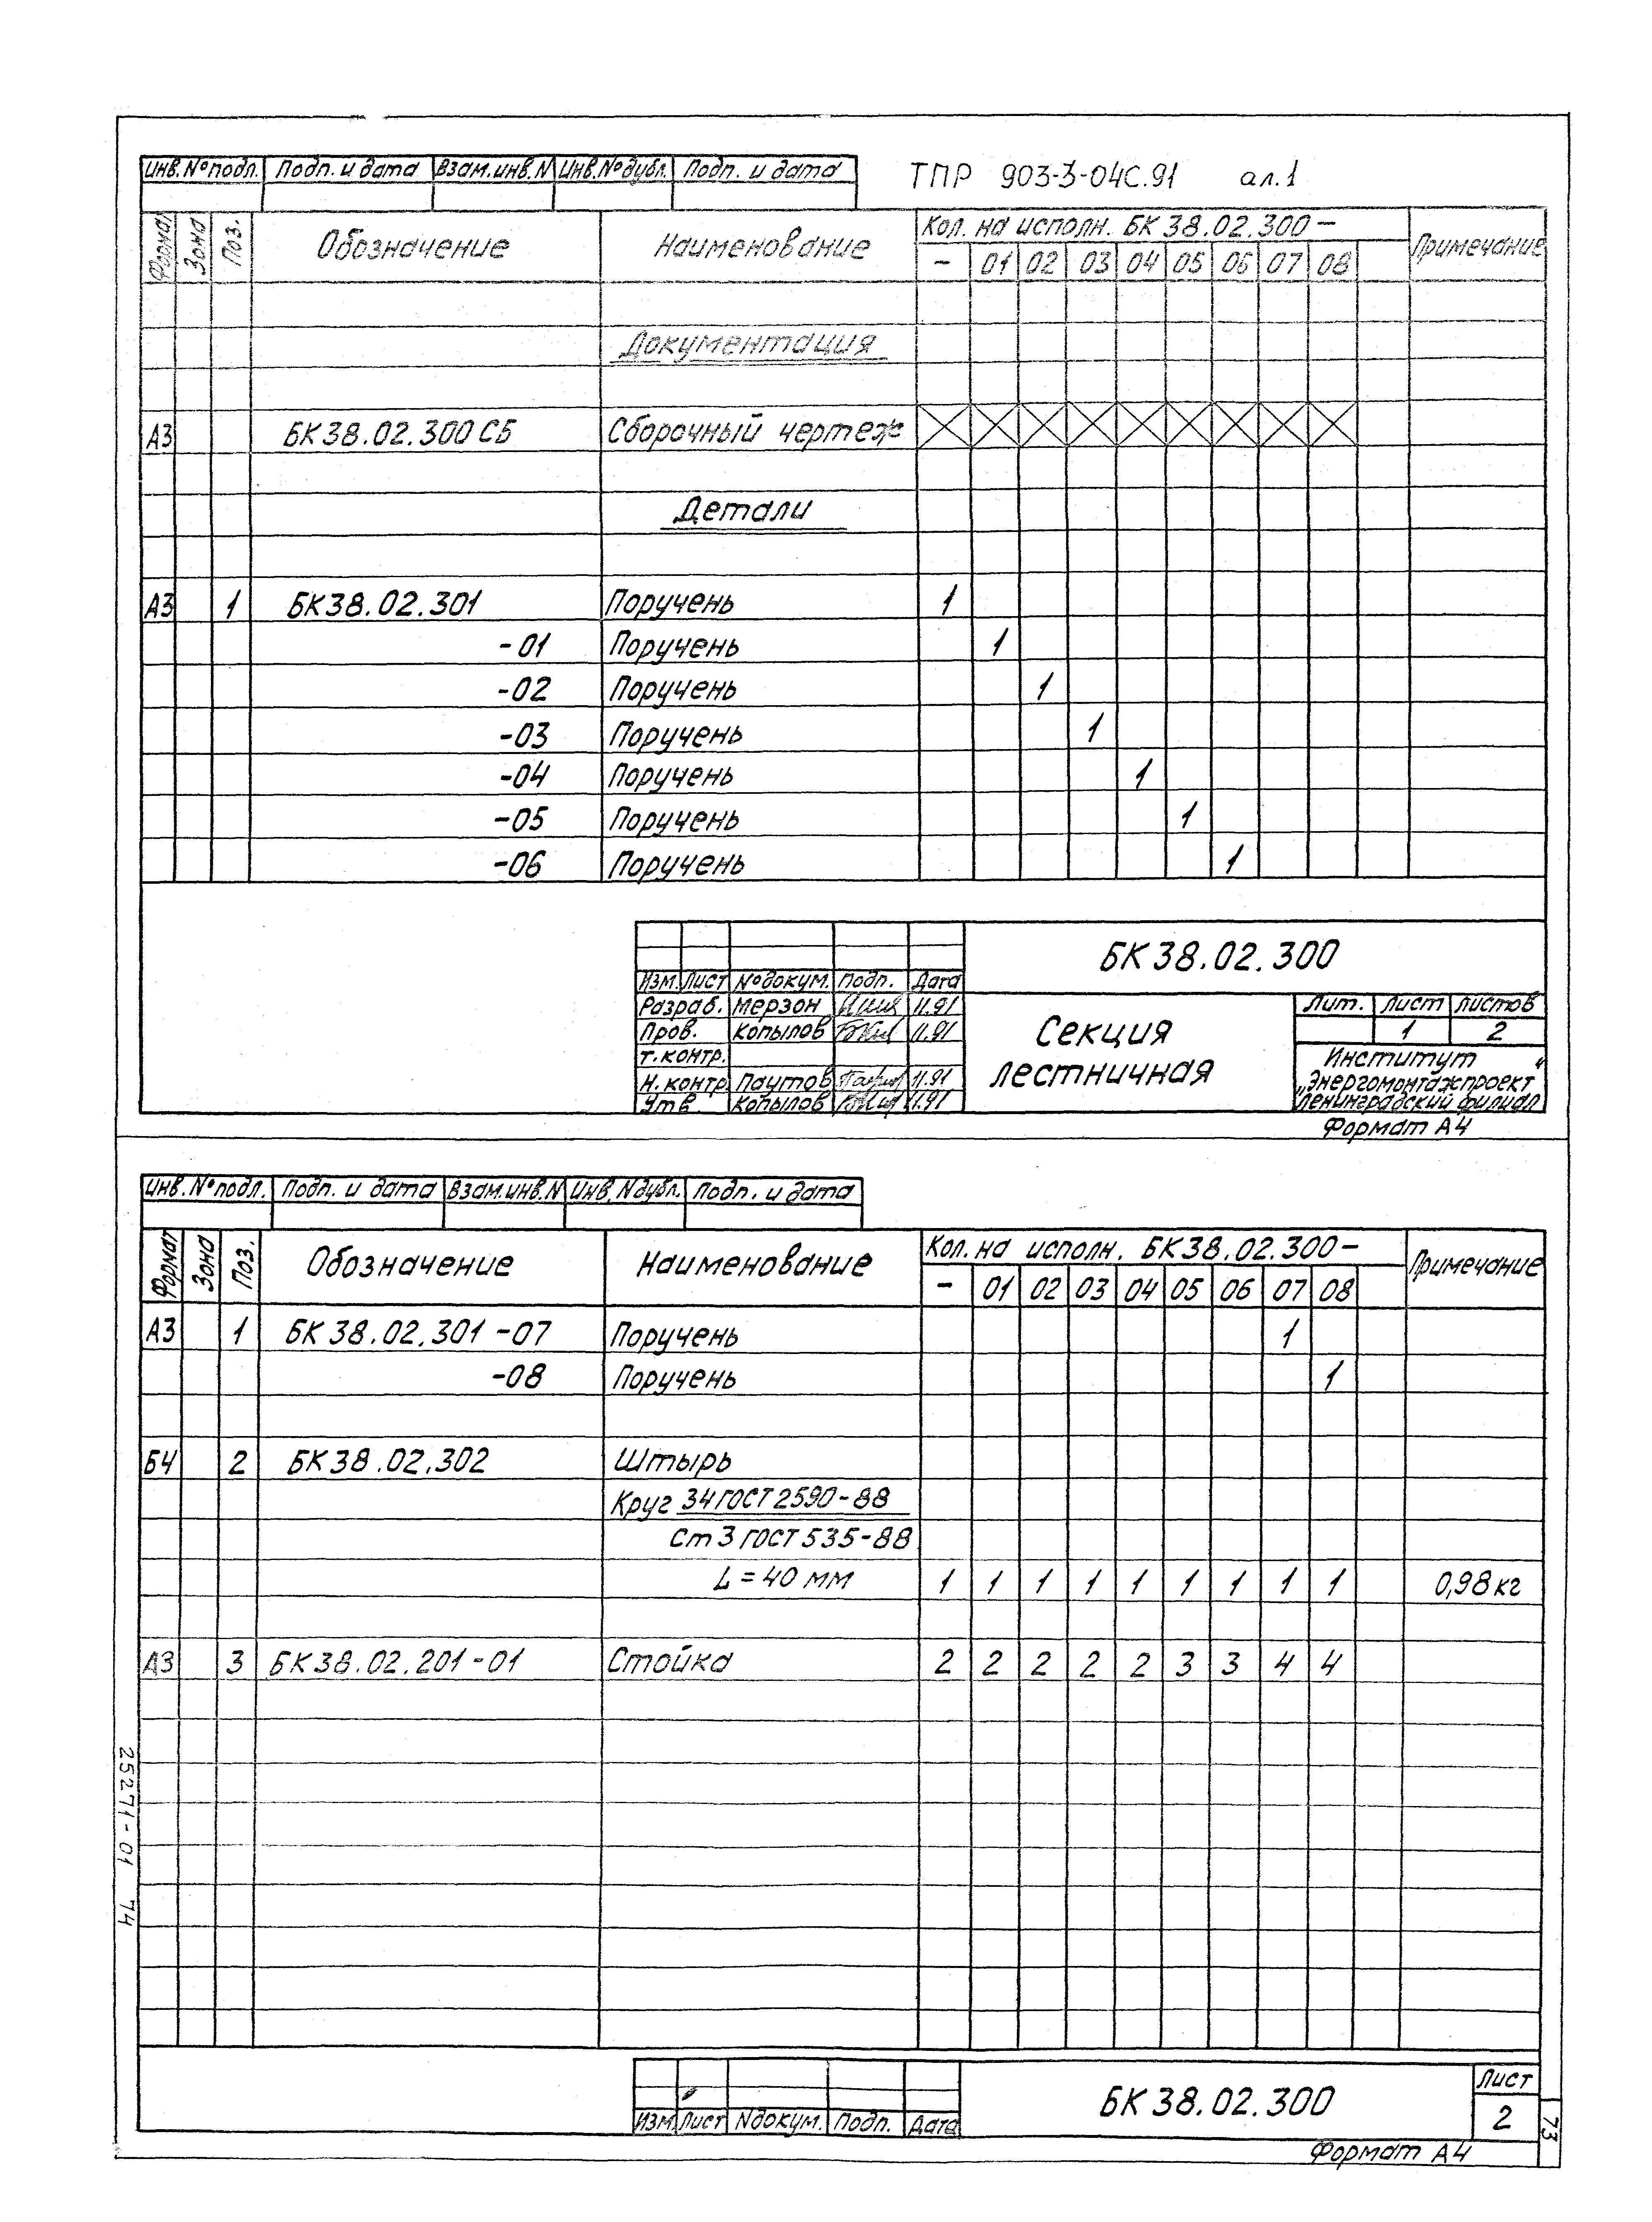 Инв.№подл. Подп. и дата Взам.инв.N Инв.№дубл. Подп. и дата
ТПР 903-3-04С.91 ал.1
Формат Зона Поз. Обозначение Наименование Кол. на исполн. БК 38.02.300— Примечание
- 01 02 03 04 05 06 07 08
Документация
А3 БК38.02.300 СБ Сборочный чертеж
Детали
А3 1 БК38.02.301 Поручень 1
-01 Поручень 1
-02 Поручень 1
-03 Поручень 1
-04 Поручень 1
-05 Поручень 1
-06 Поручень 1
БК38.02.300
Изм. Лист №докум. Подп. Дата
Разраб. Мерзон 11.91
Пров. Копылов 11.91
Т.контр.
Н.контр Паутов 11.91
Утв. Копылов 11.91
Секция
лестничная
Лит. Лист Листов
1 2
Институт
„Энергомонтажпроект"
Ленинградский филиал
Формат А4
Инв.№подл. Подп. и дата Взам.инв.N Инв.Nдубл. Подп. и дата
Формат Зона Поз. Обозначение Наименование Кол. на исполн. БК38.02.300— Примечание
- 01 02 03 04 05 06 07 08
А3 1 БК38.02.301-07 Поручень 1
-08 Поручень 1
БЧ 2 БК38.02.302 Штырь
Круг 34 ГОСТ 2590-88
Ст 3 ГОСТ 535-88
L = 40 мм 1 1 1 1 1 1 1 1 1 0,98кг
А3 3 БК38.02.201-01 Стойка 2 2 2 2 2 3 3 4 4
25271-01 74
Изм. Лист Nдокум. Подп. Дата
БК38.02.300
Лист
2
73
Формат А4